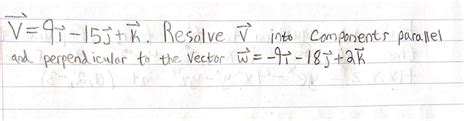 V⃗ = 9i⃗ - 15j⃗ + k⃗. Resolve V⃗ into Components parallel
and perpendicular to the vector w⃗ = -9i⃗ - 18j⃗ + 2k⃗